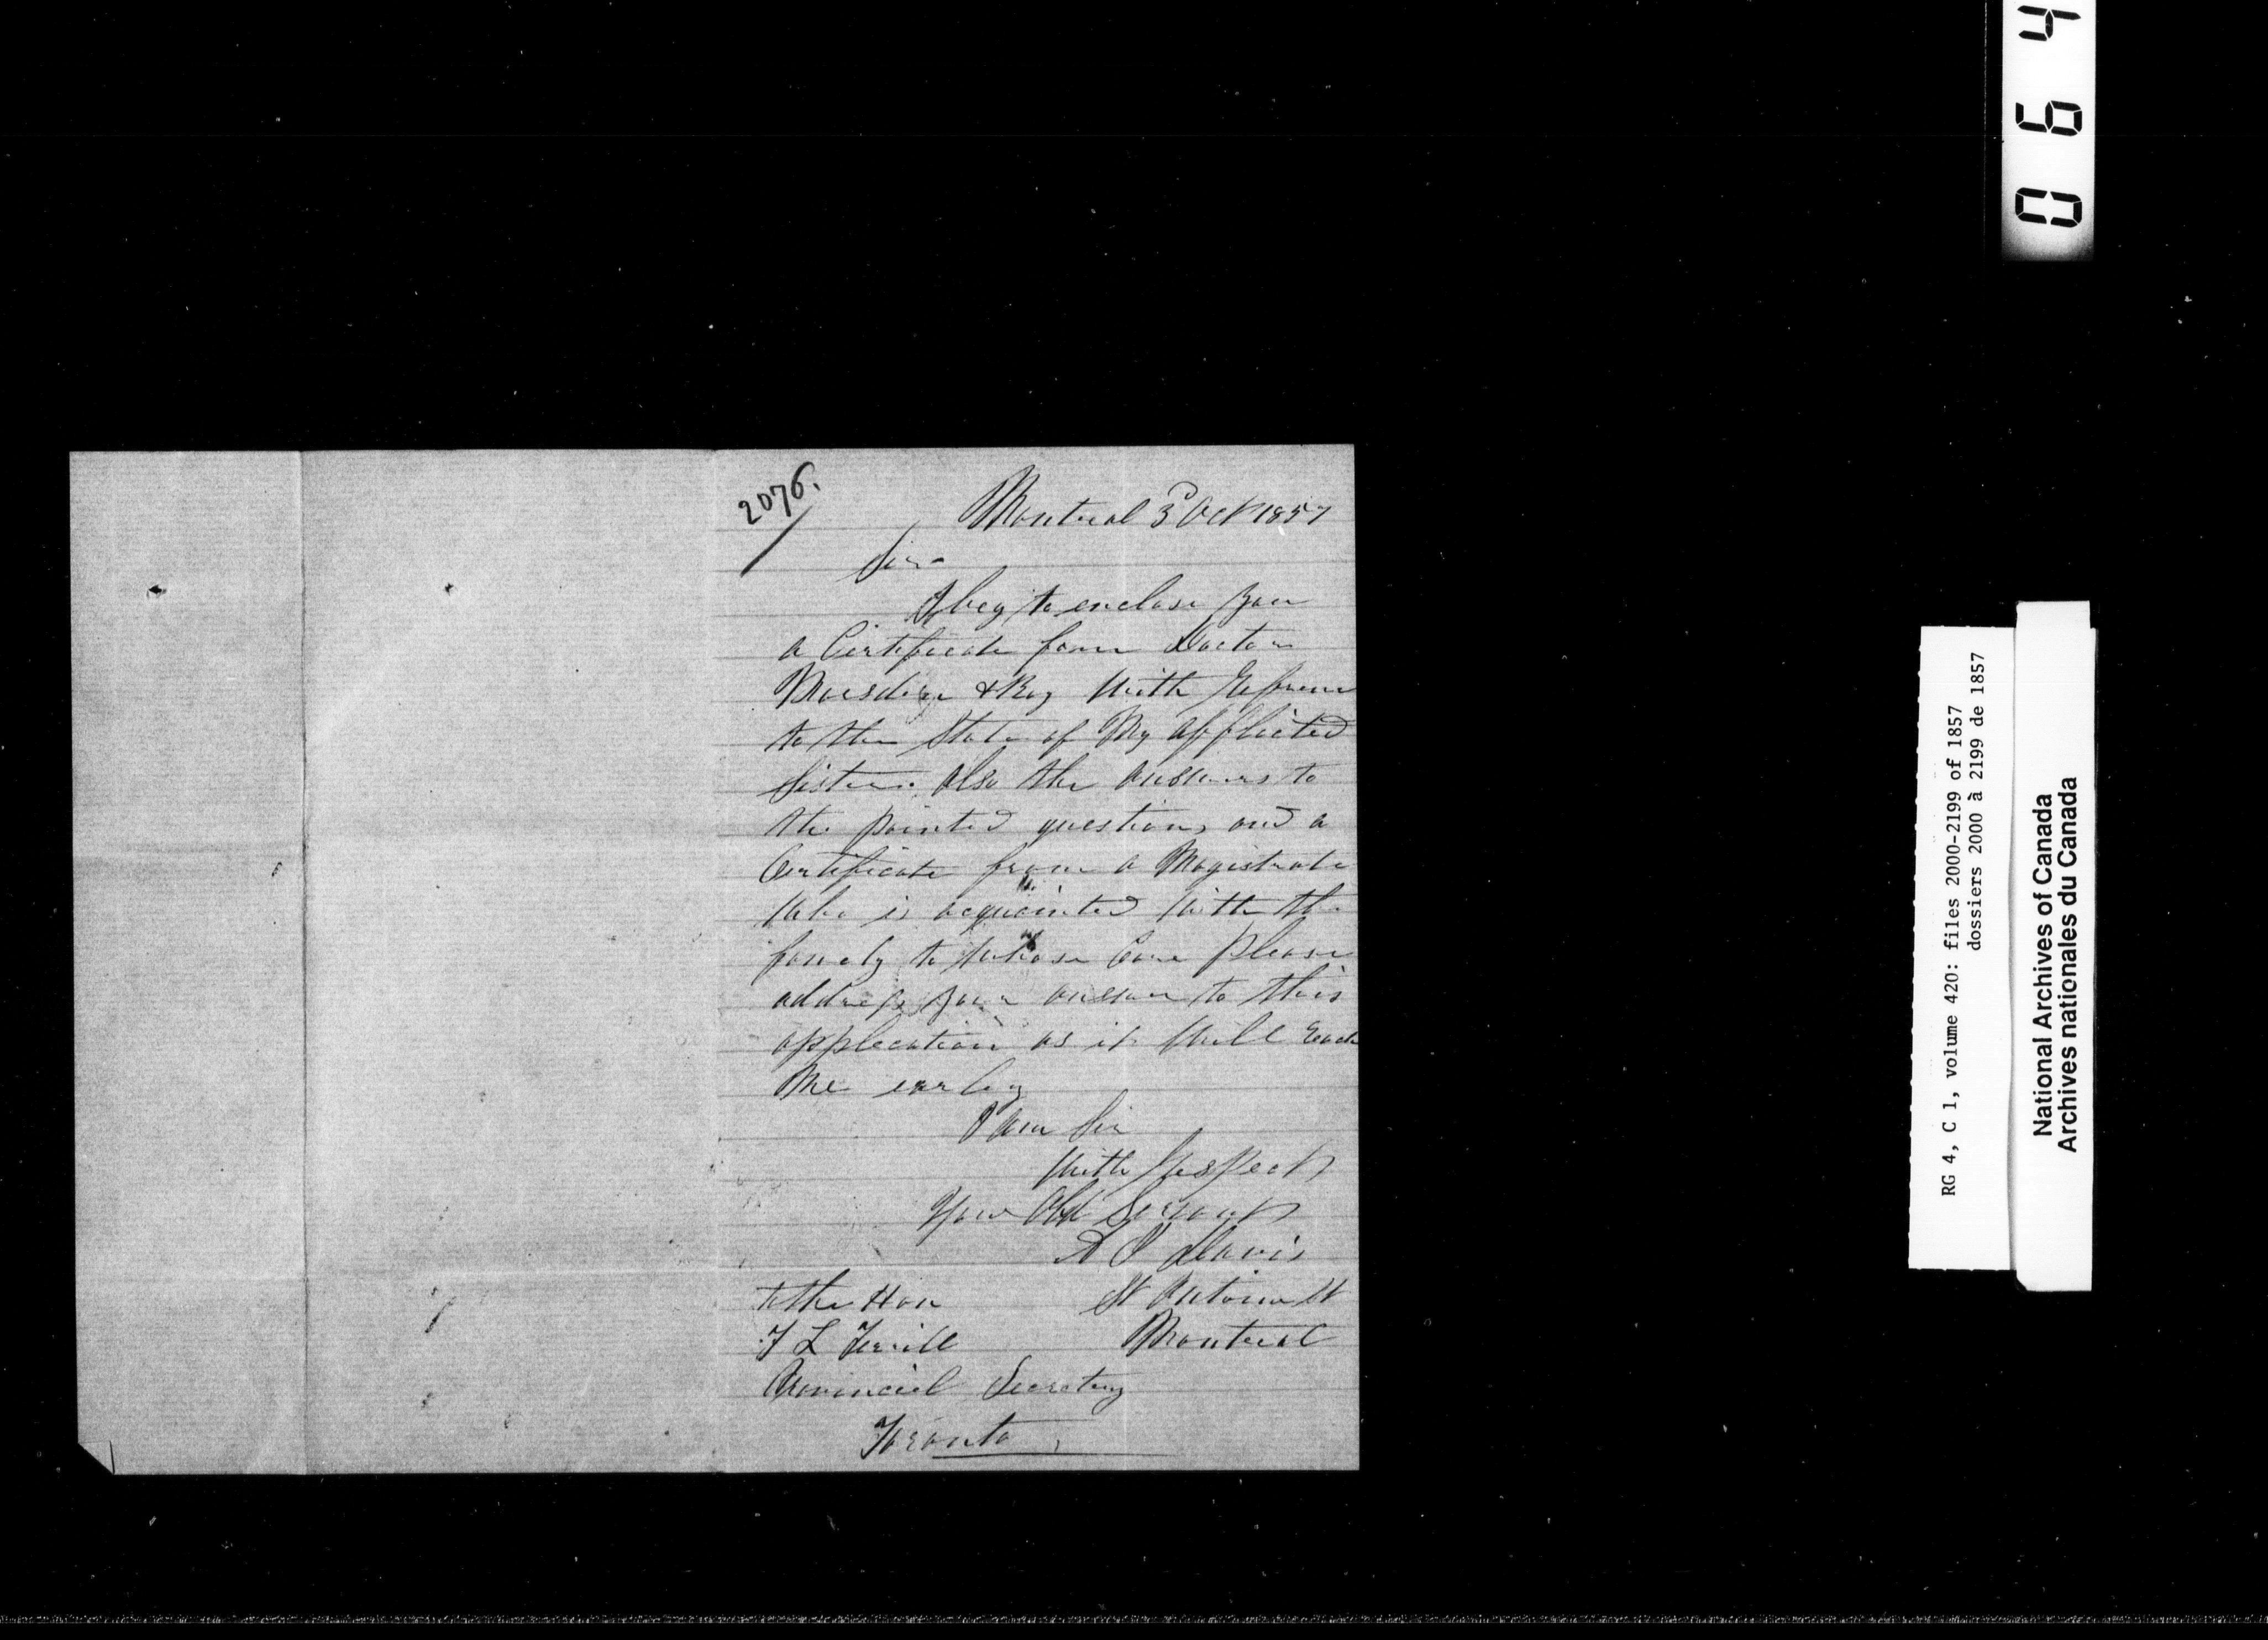 2076.
Montreal 3 Oct 1857
Sir
I beg to enclose you
a Certificate from Doctors
& Roy with reference
to the State of My afflicted
Sister. Also the answers to
the printed questions and a
Certificate from a Magistrate
who is acquainted with the
family to whose Care please
address your answer to this
application as it will reach
Me early
I am Sir
With respect
Your Obt Servant
A Davis
to the Hon
St Antoine St
T L Terrill
Montreal
Provincial Secretary
Toronto
0 6 4
RG 4, C 1, volume 420: files 2000-2199 of 1857
dossiers 2000 à 2199 de 1857
National Archives of Canada
Archives nationales du Canada